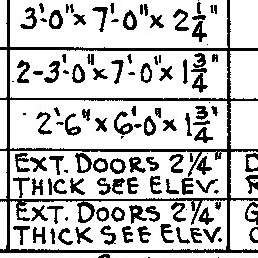 3'-0"x 7'-0"x 2 1/4"
2-3'-0"x 7'-0"x 1 3/4"
2'-6"x 6'-0"x 1 3/4"
EXT. DOORS 2 1/4"
THICK SEE ELEV.
EXT. DOORS 2 1/4"
THICK SEE ELEV.